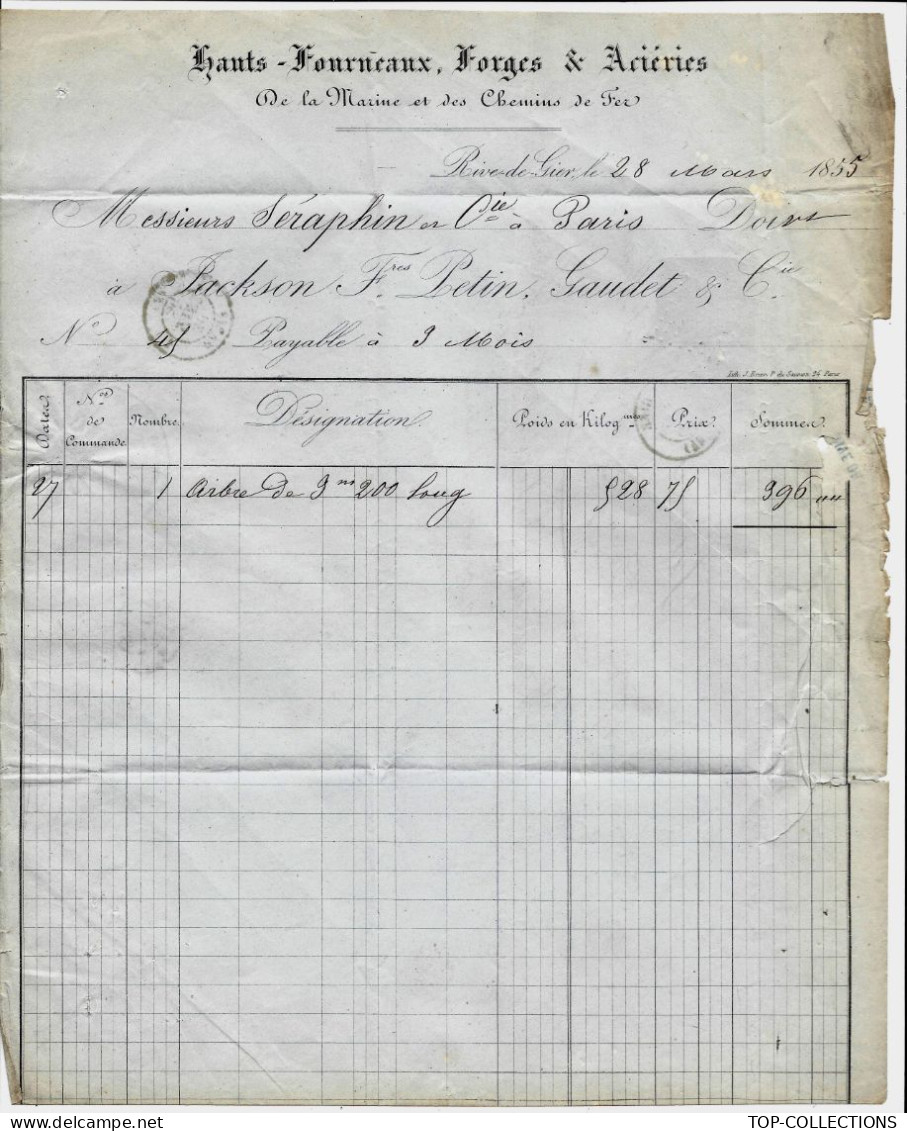 Hauts-Fourneaux, Forges & Aciéries
De la Marine et des Chemins de Fer
Rive-de-Gier, le 28 Mars 1855
Messieurs Séraphin et Cie à Paris Doivt
à Jackson Fres Petin, Gaudet & Cie
No 45 Payable à 3 Mois
Dates Nos de Commande Nombre Désignation Poids en Kilogmes Prix Sommes
27 1 Arbre de 3m 200 long 528 75 396
TOP-COLLECTIONS